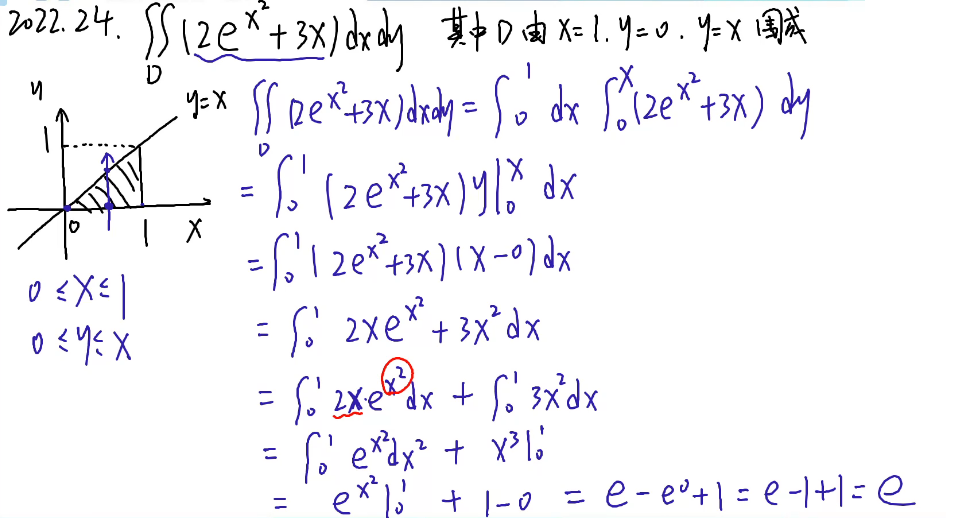 2022.24. ∬_D (2e^{x²}+3x)dxdy 其中D由x=1.y=0.y=x围成
y
1
y=x
0
1
x
0≤x≤1
0≤y≤x
∬_D (2e^{x²}+3x)dxdy = ∫_0^1 dx ∫_0^x (2e^{x²}+3x) dy
= ∫_0^1 (2e^{x²}+3x)y|_0^x dx
= ∫_0^1 (2e^{x²}+3x)(x-0)dx
= ∫_0^1 2xe^{x²}+3x²dx
= ∫_0^1 2x·e^{x²}dx + ∫_0^1 3x²dx
= ∫_0^1 e^{x²}dx² + x³|_0^1
= e^{x²}|_0^1 + 1-0 = e-e⁰+1 = e-1+1 = e